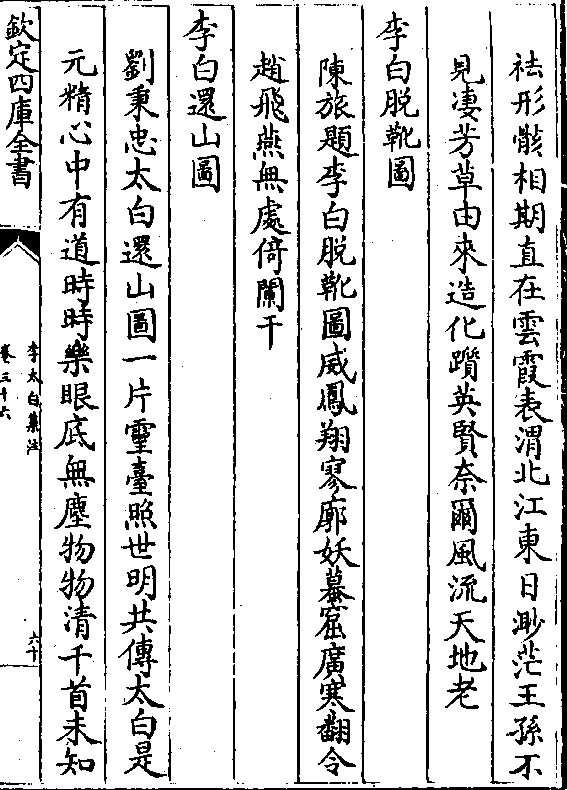 祛形骸相期直在雲霞表渭北江東日渺茫王孫不
見凄芳草由來造化躓英賢奈爾風流天地老
李白脱靴圖
陳旅題李白脱靴圖威鳳翔寥廓妖蟇窟廣寒翻令
趙飛燕無處倚闌干
李白還山圖
劉秉忠太白還山圖一片靈臺照世明共傳太白是
元精心中有道時時樂眼底無塵物物清千首未知
欽定四庫全書
李太白集注
卷三十六
六十